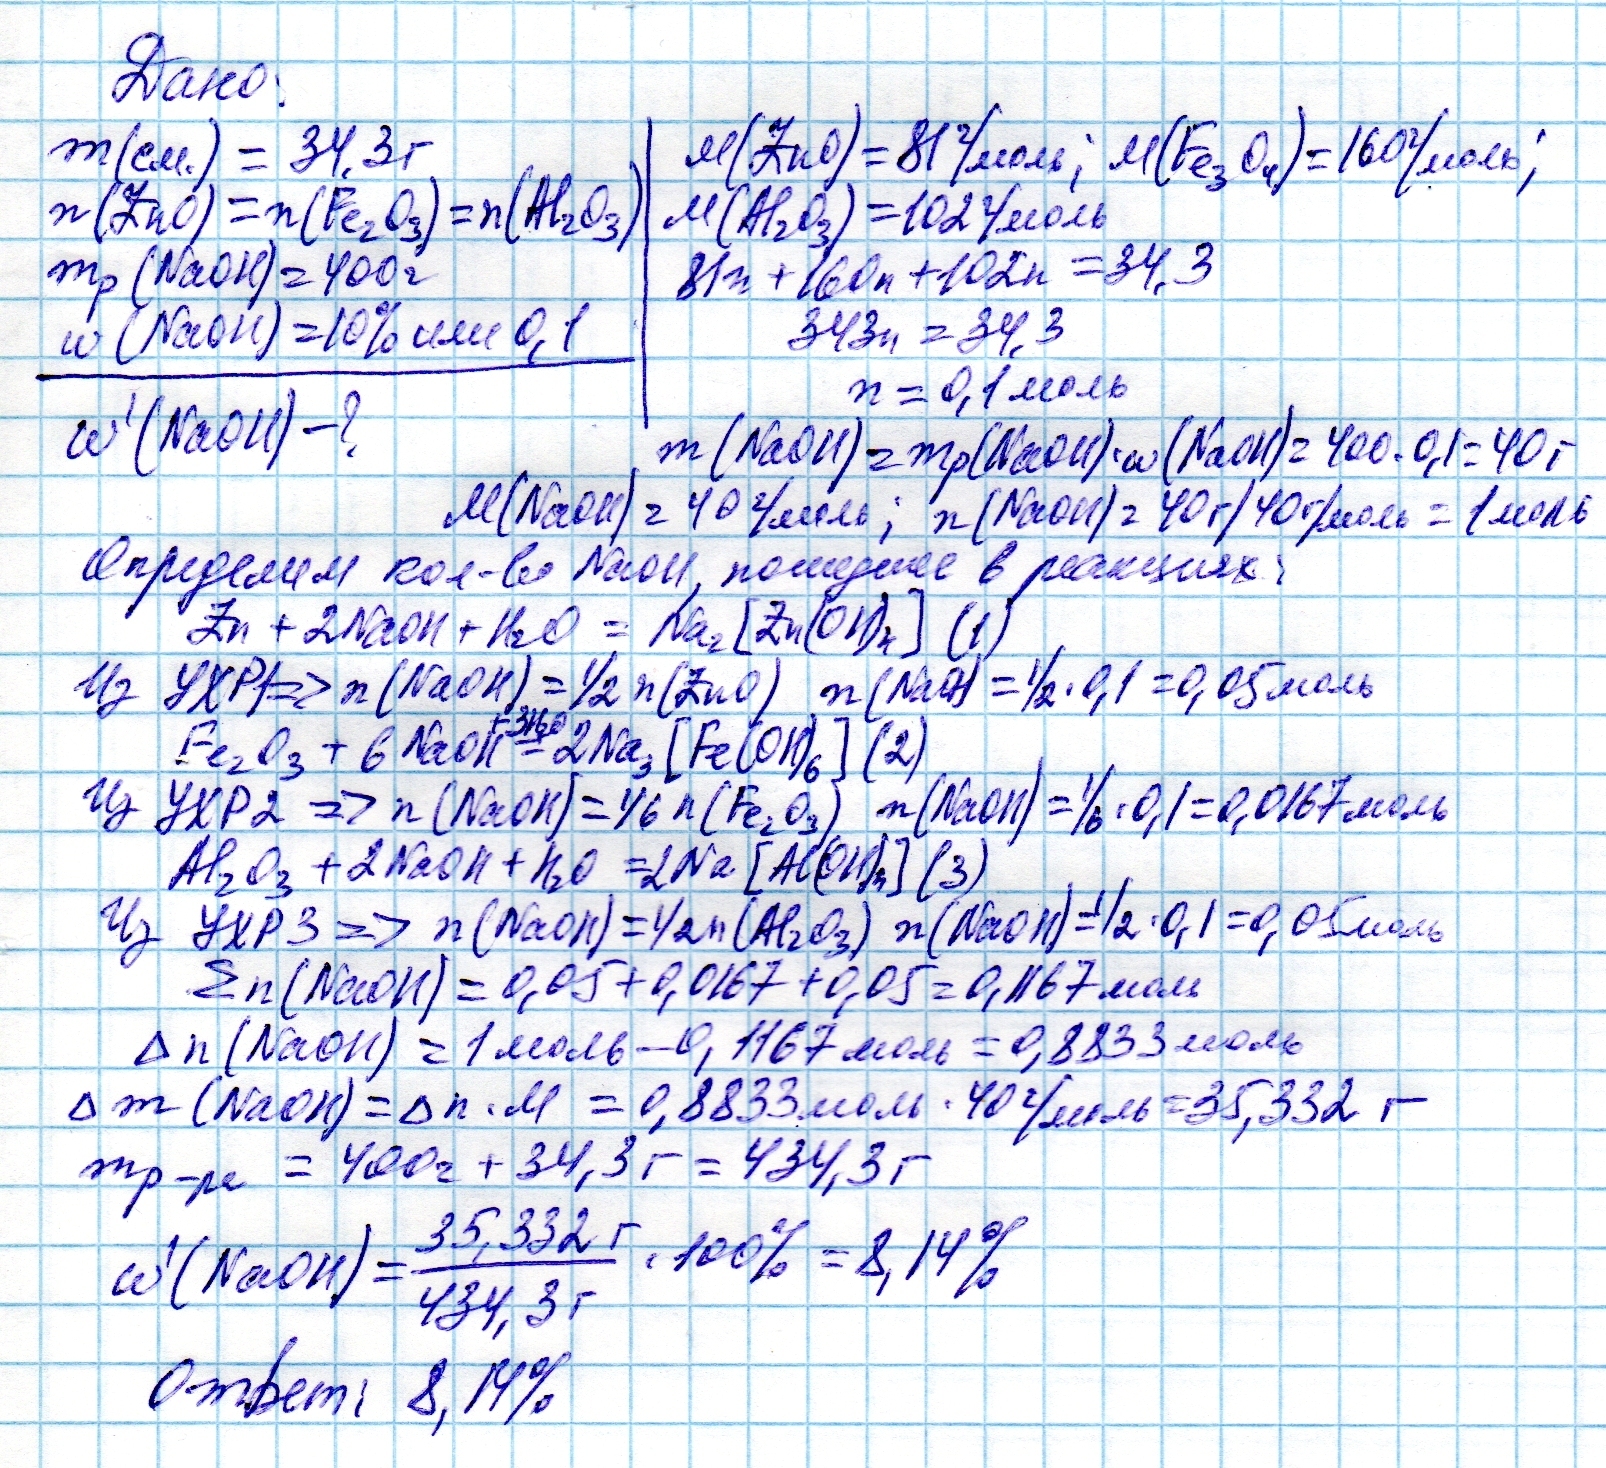 Дано:
m(см.) = 34,3г
n(ZnO) = n(Fe₂O₃) = n(Al₂O₃)
mр(NaOH) = 400г
w(NaOH) = 10% или 0,1
w'(NaOH) - ?
M(ZnO) = 81 г/моль; M(Fe₃O₄) = 160 г/моль;
M(Al₂O₃) = 102 г/моль
81n + 160n + 102n = 34,3
343n = 34,3
n = 0,1 моль
m(NaOH) = mр(NaOH)·w(NaOH) = 400·0,1 = 40г
M(NaOH) = 40 г/моль; n(NaOH) = 40г/40г/моль = 1 моль
Определим кол-во NaOH, пошедшее в реакциях:
Zn + 2NaOH + H₂O = Na₂[Zn(OH)₄] (1)
Из УХР1 => n(NaOH) = 1/2 n(ZnO) n(NaOH) = 1/2·0,1 = 0,05 моль
Fe₂O₃ + 6NaOH +3H₂O = 2Na₃[Fe(OH)₆] (2)
Из УХР2 => n(NaOH) = 1/6 n(Fe₂O₃) n(NaOH) = 1/6·0,1 = 0,0167 моль
Al₂O₃ + 2NaOH + H₂O = 2Na[Al(OH)₄] (3)
Из УХР3 => n(NaOH) = 1/2 n(Al₂O₃) n(NaOH) = 1/2·0,1 = 0,05 моль
Σn(NaOH) = 0,05 + 0,0167 + 0,05 = 0,1167 моль
Δn(NaOH) = 1 моль - 0,1167 моль = 0,8833 моль
Δm(NaOH) = Δn·M = 0,8833 моль·40 г/моль = 35,332 г
mр-ра = 400г + 34,3г = 434,3г
w'(NaOH) = 35,332г / 434,3г · 100% = 8,14%
Ответ: 8,14%